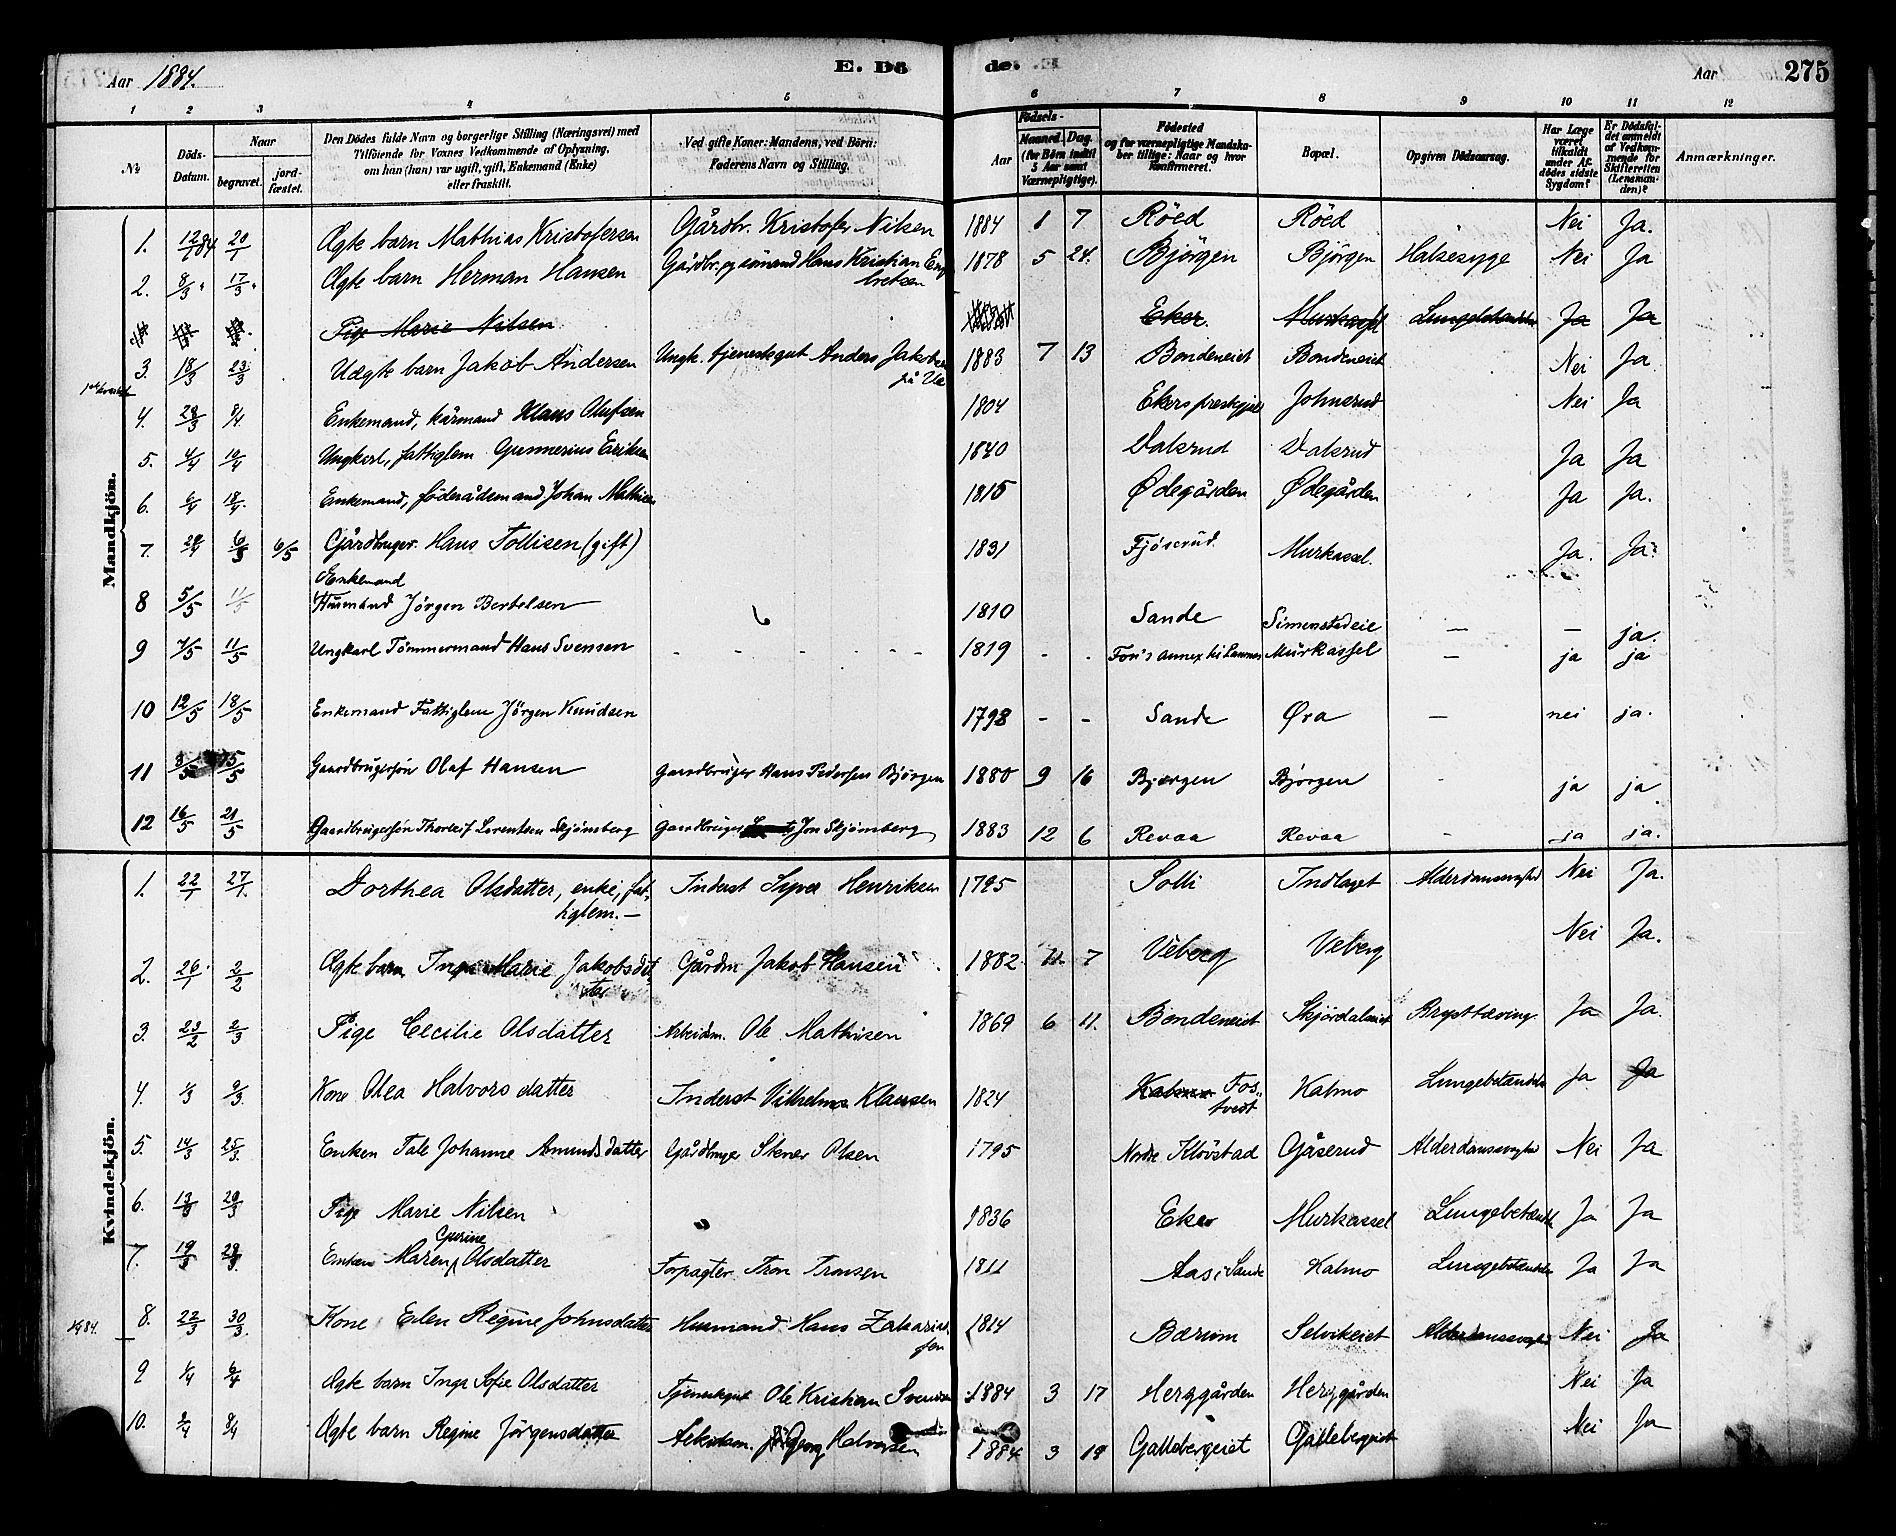 Aar 1884. E. Dö de. Aar 275
1 2 3 4 5 6 7 8 9 10 11 12
No. Döds-Datum. Naar begravet. jordfæstet. Den Dödes fulde Navn og borgerlige Stilling (Næringsvei) med Tilföiende for Voxnes Vedkommende af Oplysning, om han (hun) var ugift, gift, Enkemand (Enke) eller fraskilt. Ved gifte Koner: Mandens, ved Börn: Faderens Navn og Stilling. Födsels- Aar Maaned. Dag. (for Börn indtil 5 Aar samt Værnepligtige). Födested og for værnepligtige Mandskaber tillige: Naar og hvor Konfirmeret. Bopæl. Opgiven Dödsaarsag. Har Læge været tilkaldt under Afdödes sidste Sygdom? Er Dödsfaldet anmeldt af Vedkommende for Skifteretten (Lensmanden)? Anmærkninger.
Mandkjön.
1. 12/1 84 20/1 Ægte barn Mathias Kristofersen Gårdbr. Kristofer Nilsen 1884 1 7 Röed Röed Nei Ja.
2. 8/3 17/3 Ægte barn Herman Hansen Gårdbr. og sömand Hans Kristian Engebretsen 1878 5 24. Bjørgen Bjørgen Halsesyge Nei Ja
Pige Marie Nilsen Eker. Murkassel Lungebetændelse Ja Ja
3. 18/3 23/3 Uægte barn Jakob Andersen Ungk. tjenestegut Anders Jakobsen 1883 7 13 Bondeneiet Bondeneiet Nei Ja
4. 28/3 8/4 Enkemand, kårmand Klaus Olufsen 1804 Ekers prestegjeld Johnsrud Nei Ja
5. 4/4 10/4 Ungkarl, fattiglem Gunnerius Eriksen 1840 Valsrud Valsrud Ja Ja
6. 6/4 18/4. Enkemand, föderådsmand Johan Mathisen 1815 Ødegården Ødegården Ja Ja.
7. 28/4 6/5 6/5 Gårdbruger Hans Tollisen (gift) 1831 Fjöserud. Murkassel. Ja. Ja.
8 5/5 11/5 Enkemand Husmand Jörgen Bertelsen 1810 Sande Simenstadeie — — ja.
9 7/5 11/5 Ungkarl Tömmermand Hans Svensen 1819 - - Murkassel — ja ja
10 12/5 18/5 Enkemand Fattiglem Jörgen Knudsen 1798 - - Sande Øra — nei ja.
11 8/5 15/5 Gaardbrugersön Olaf Hansen Gaardbruger Hans Pedersen Björgen 1880 9 16 Bjørgen Bjørgen - ja ja
12 16/5 21/5 Gaardbrugersön Thorleif Lorentsen Skjömsberg Gaardbruger Jon Skjömsberg 1883 12 6 Revaa Revaa - ja ja.
Kvindekjön.
1. 22/1 27/1. Dorthea Olsdatter, enke, fattiglem. — Inderst Syver Henriksen 1795 Solli Indlaget Alderdomssvaghed Nei Ja.
2. 26/1 2/2 Ægte barn Inga Marie Jakobsdatter Gårdm Jakob Hansen 1882 11. 7 Veberg Veberg Nei Ja.
3. 23/2 2/3 Pige Cecilie Olsdatter Arbeidsm. Ole Mathisen 1869 6 11. Bondeneiet Skjördalseiet Brysttæring Ja Ja.
4. 1/3 9/3. Kone Olea Halvorsdatter Inderst Vilhelm Klausen 1824 Kalmo Fostvedt Kalmo Lungebetændelse Ja Ja
5. 14/3 25/3. Enken Tale Johanne Amundsdatter Gårdbruger Stener Olsen 1795 Nordre Klövstad Gåserud Alderdomssvaghed Nei Ja
6. 13/3 29/3 Pige Marie Nilsen 1836 Eker Murkassel Lungebetændelse Ja Ja
7. 19/3 29/3. Enken Maren Gurine Olsdatter Forpagter Tron Tronsen 1811 Aas i Sande Kalmo Lungebetændelse Ja Ja
8. 22/3 30/3. Kone Elen Regine Johnsdatter Husmand Hans Zakariassen 1814 Bærum Selvikeiet Alderdomssvaghed Nei Ja
9 1/4 6/4 Ægte barn Inga Sofie Olsdatter Tjenestegut Ole Kristian Svensen 1884 3 17 Herggården Herggården Nei Ja
10. 2/4 8/4 Ægte barn Regine Jörgensdatter Georg Halvorsen 1884 3 18 Gallebergeiet Gallebergeiet Nei Ja